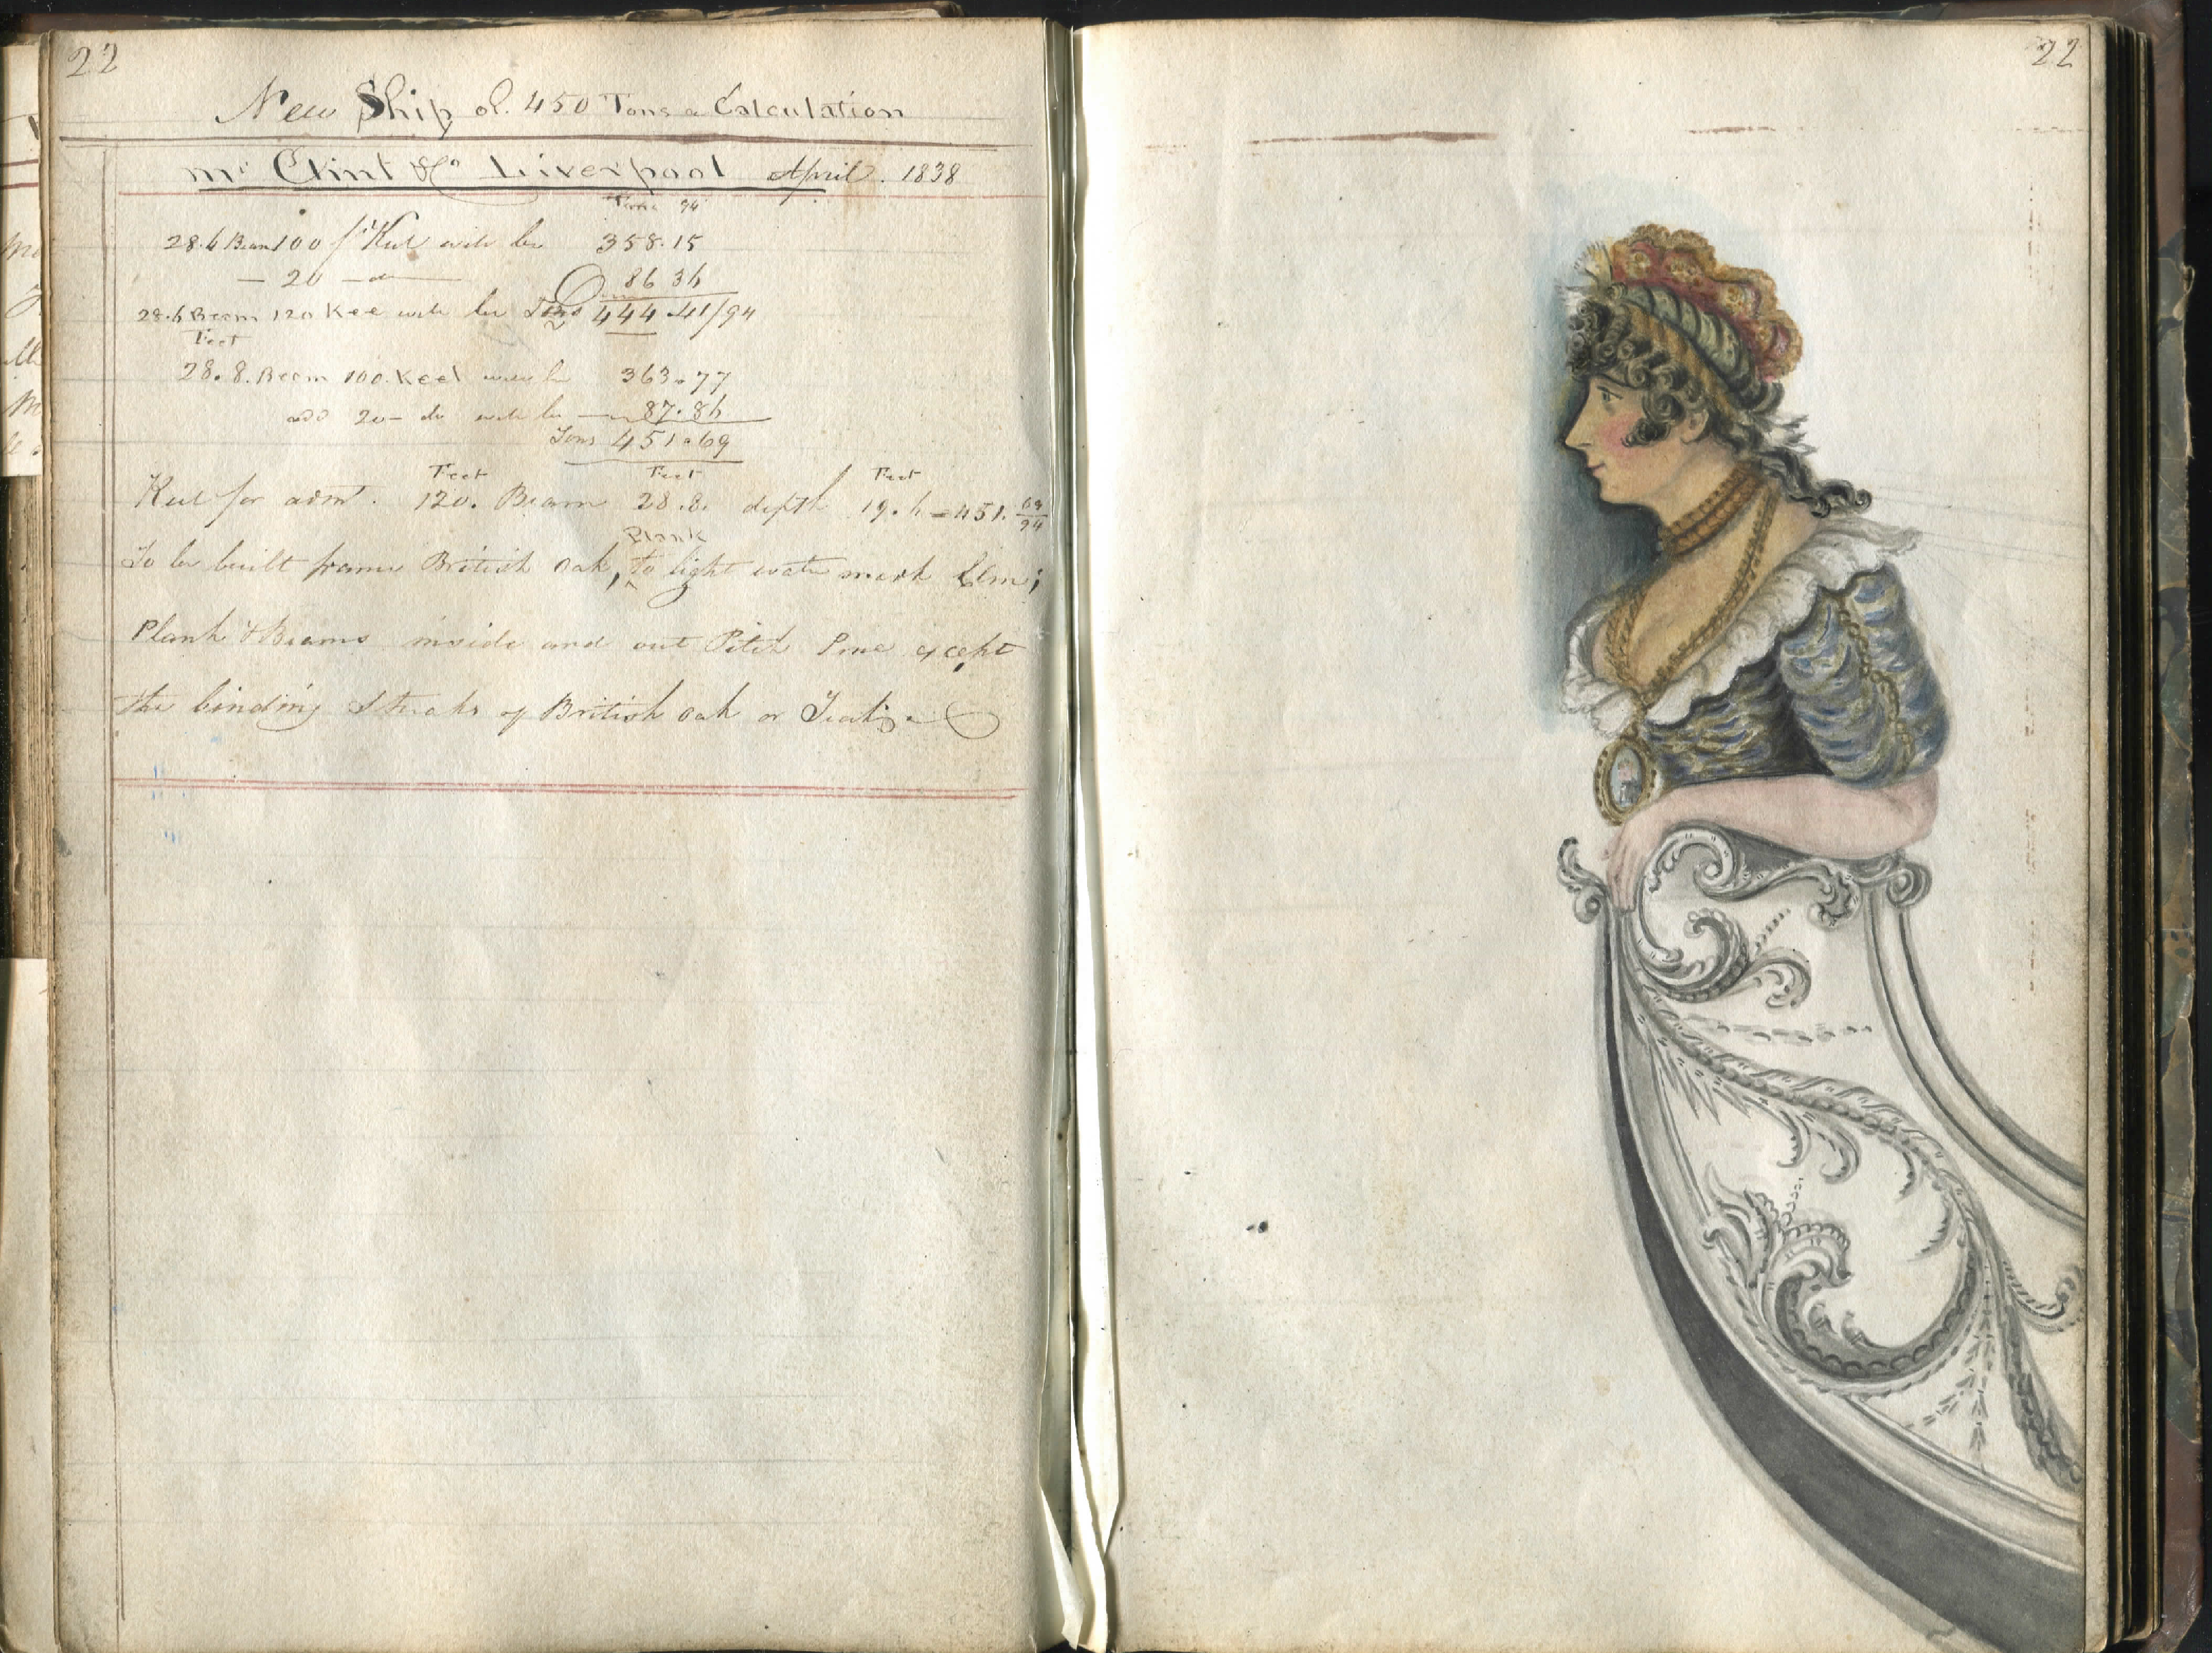 22
New Ship of 450 Tons a Calculation
Mr Clint & Co Liverpool April 1838
Tons 94
28.6 Beam 100 ft Keel will be 358.15
— 20 — do — 86 36
28.6 Beam 120 Kee will be Tons 444 .41/94
Feet
28.8. Beem 100. Keel will be 363.77
add 20 — do will be — 87.86
Tons 451.69
Feet Feet Feet
Keel for admt. 120. Beam 28.8. depth 19.6 = 451. 69/94
Plank
To be built frame British Oak, to light water mark Elm;
Plank & Beams inside and out Pitch Pine except
the binding Streaks of British oak or
22